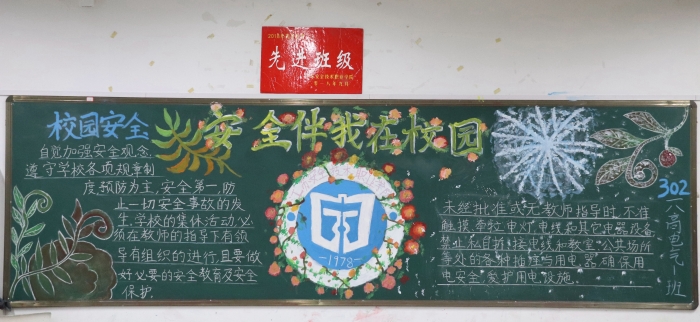 先进班级
安全伴我在校园
校园安全
自觉加强安全观念,
遵守学校各项规章制
度,预防为主,安全第一,防
止一切安全事故的发
生,学校的集休活动,必
须在教师的指导下有领
导有组织的进行,且要做
好必要的安全教育及安全
保护.
1978
未经批准或无教师指导时,不准
触摸,牵拉电灯,电线及其它电器设备
禁止私自拆接电线和教室,公共场所
等处的各种插座与用电器,确保用
电安全,爱护用电设施.
302
高电气
班